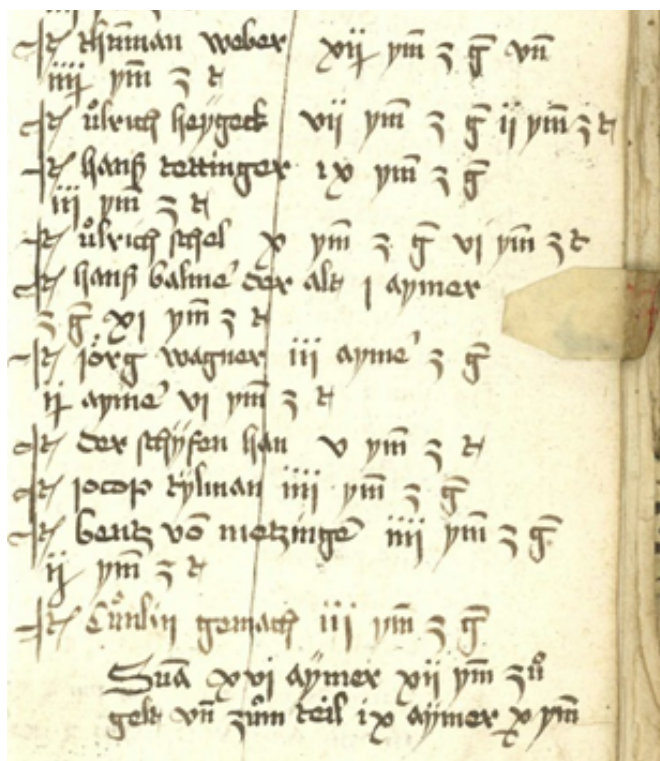 thüman weber xij ym̄ z g̅ vn̄
iiij ym̄ z t
ůlrich heÿgeck vij ym̄ z g̅ ij ym̄ z t
hanß tettinger ix ym̄ z g̅
iij ym̄ z t
ůlrich schel x ym̄ z g̅ vi ym̄ z t
hanß balme' der alt j aymer
z g̅ xi ym̄ z t
jörg wagner iii ayme' z g̅
ij ayme' vi ym̄ z t
der schÿfen han v ym̄ z t
jocop tÿlman iiij ym̄ z g̅
bentz vō metzingē iiij ym̄ z g̅
ij ym̄ z t
Cůnlin gemach iii ym̄ z g̅
Sum̄a xvi aÿmer xij ym̄ zů
gelt vn̄ zům teil ix aÿmer x ym̄